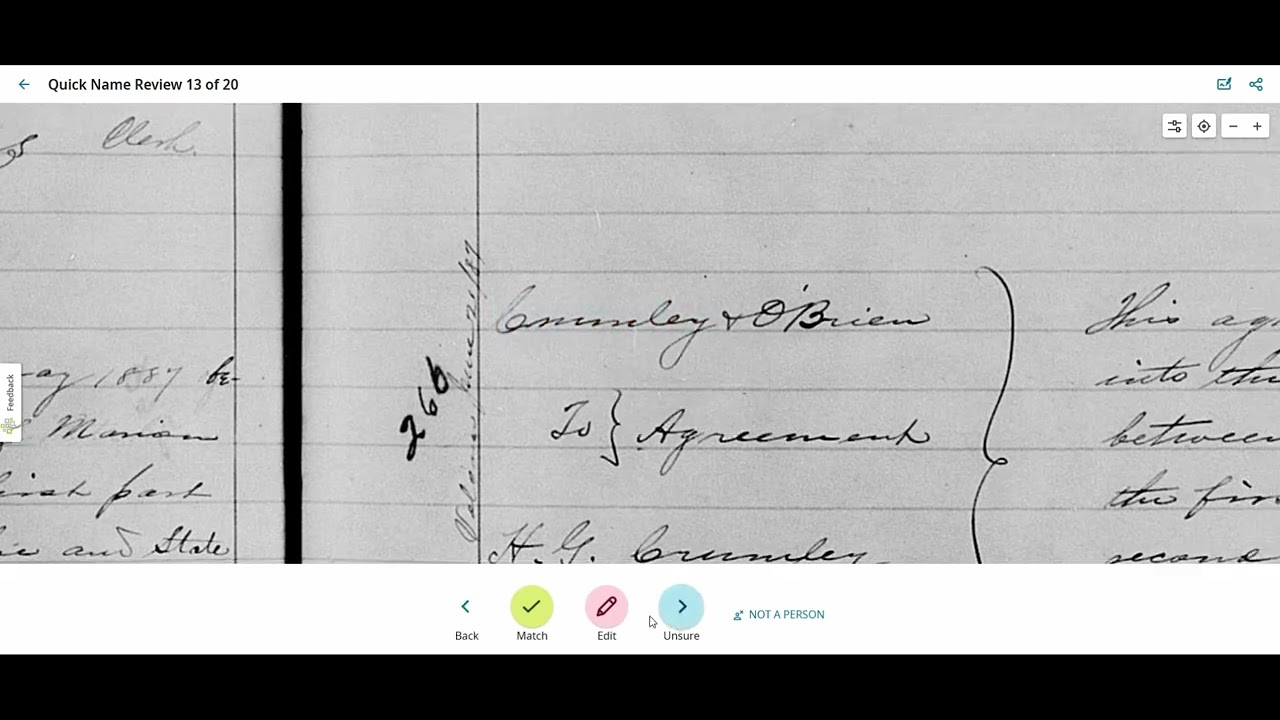 Quick Name Review 13 of 20
Clerk.
1887 be-
Marion
first part
and State
266
June 21/87
Crumley & O'Brien
To } Agreement
H. G. Crumley
This
into
between
the
second
Feedback
Back
Match
Edit
Unsure
NOT A PERSON